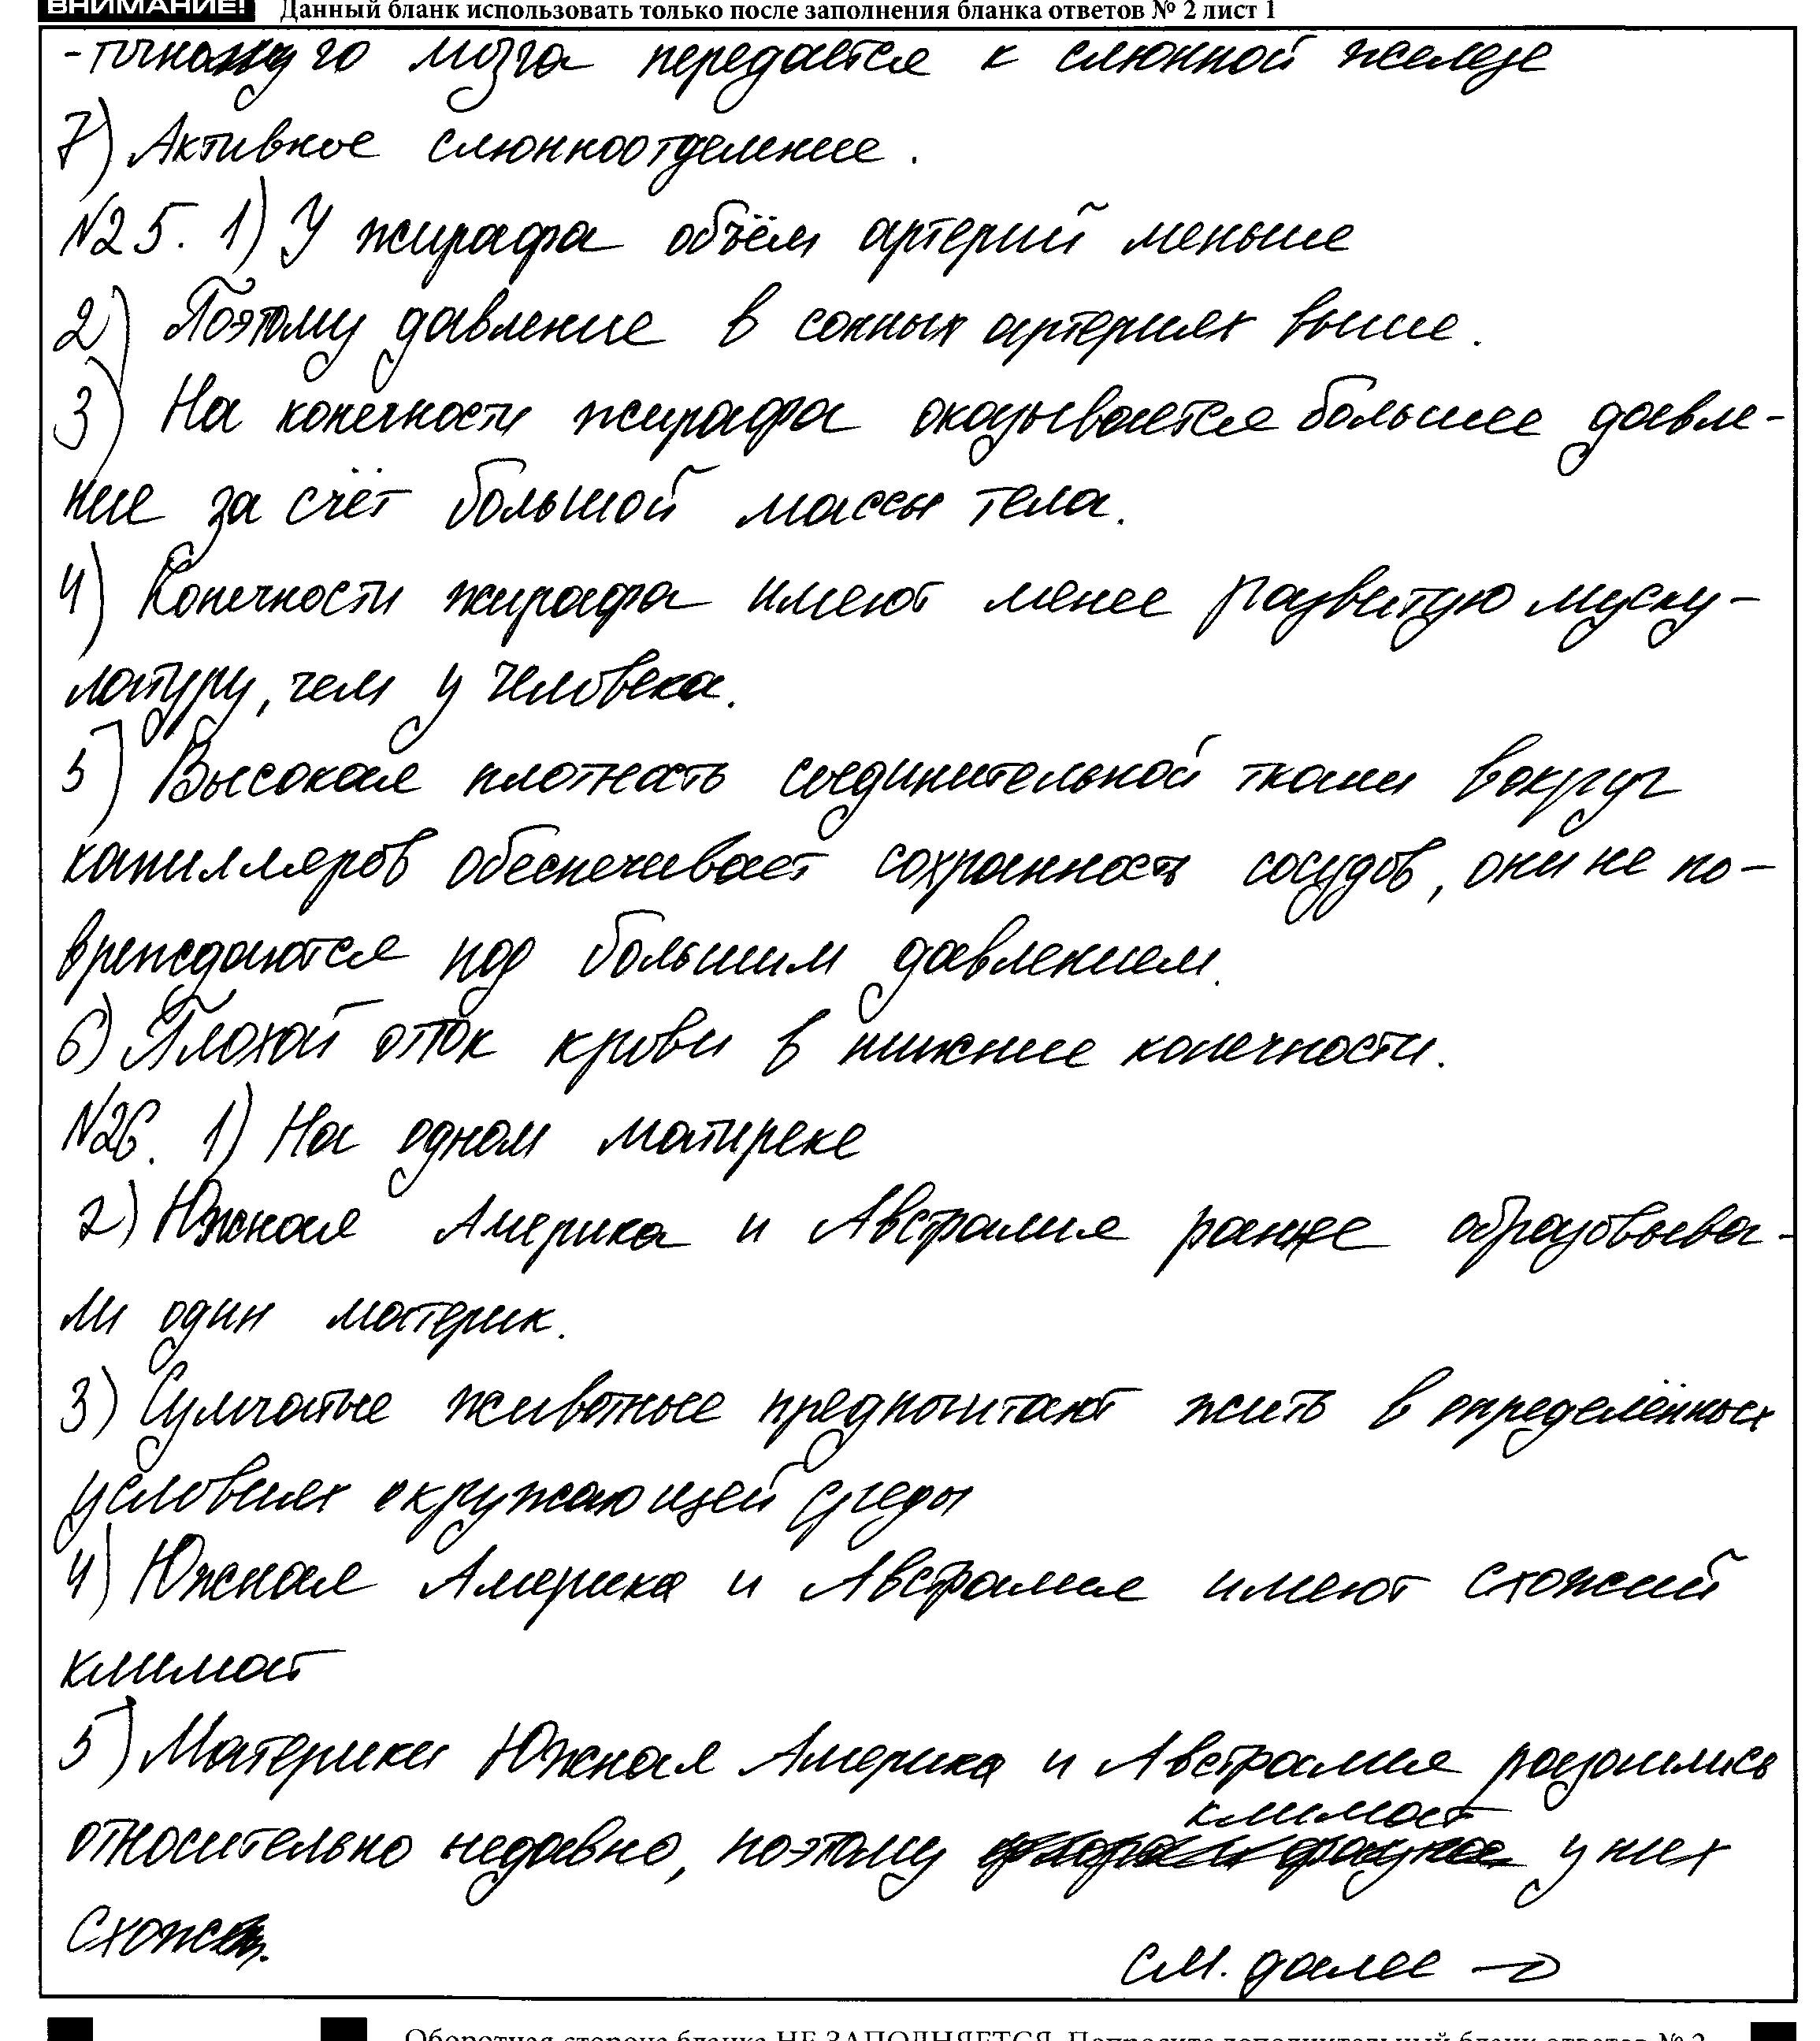 ВНИМАНИЕ! Данный бланк использовать только после заполнения бланка ответов № 2 лист 1
мозга передаётся к слюнной железе
7) Активное слюнноотделение.
№25. 1) У жирафа объём артерий меньше
2) Поэтому давление в сонных артериях выше.
3) На конечности жирафа оказывается большее давле-
ние за счёт большой массы тела.
4) Конечности жирафа имеют менее развитую муску-
латуру, чем у человека.
5) Высокая плотность соединительной ткани вокруг
капилляров обеспечивает сохранность сосудов, они не по-
вреждаются под большим давлением.
6) Плохой отток крови в нижние конечности.
№26. 1) На одном матиреке
2) Южная Америка и Австралия ранее образовыва-
ли один материк.
3) Сумчатые животные предпочитают жить в определённых
условиях окружающей среды
4) Южная Америка и Австралия имеют схожий
климат
5) Материки Южная Америка и Австралия разошлись
относительно недавно, поэтому климат у них
схож.
см. далее →
Оборотная сторона бланка НЕ ЗАПОЛНЯЕТСЯ. Попросите дополнительный бланк ответов № 2